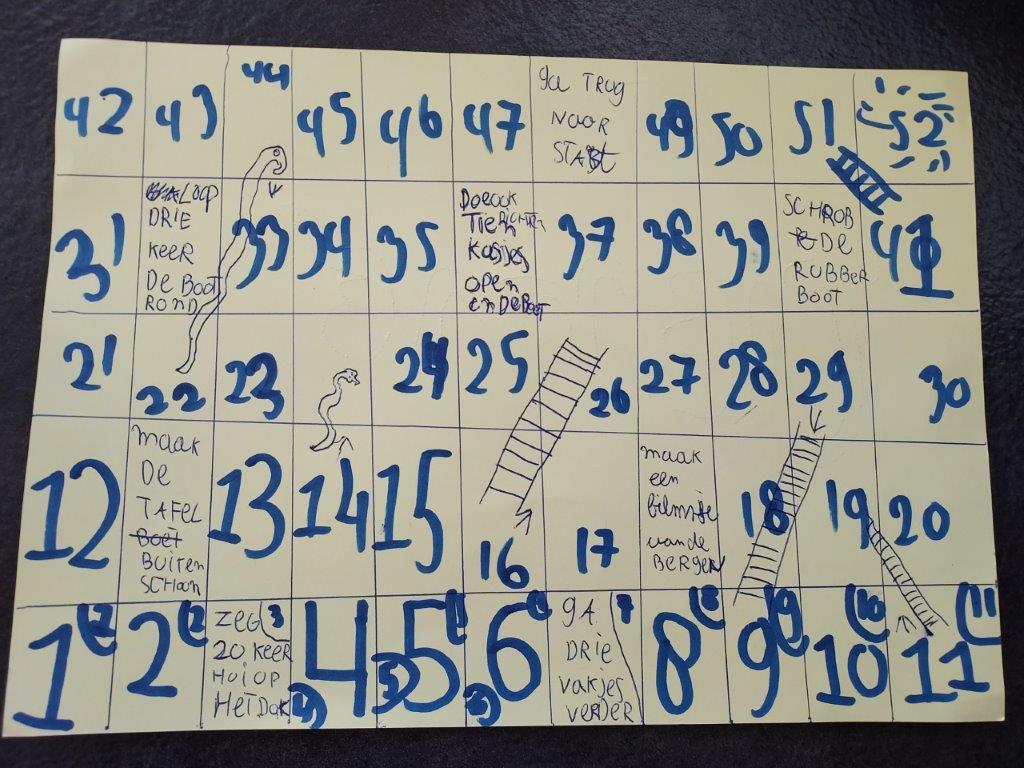 42 43 44 45 46 47
ga TRUG
NAAR
START
49 50 51 52
31
LOOP
DRIE
KEER
DE BOOT
ROND
33 34 35
Tien
kasjes
open
en DeBOOT
37 38 39
SCHROB
DE
RUBBER
BOOT
41
21 22 23 24 25 26 27 28 29 30
12
maak
De
TAFEL
Boet
BUITEN
SCHOON
13 14 15 16 17
maak
een
vande
BERGEN
18 19 20
1 (2 2 (2
ZEG 3
20 KEER
HOI OP
HET DAK
4 5 6
GA 7
DRIE
vakjes
VERDER
8 (8 9 (9 10 (10 11 (11